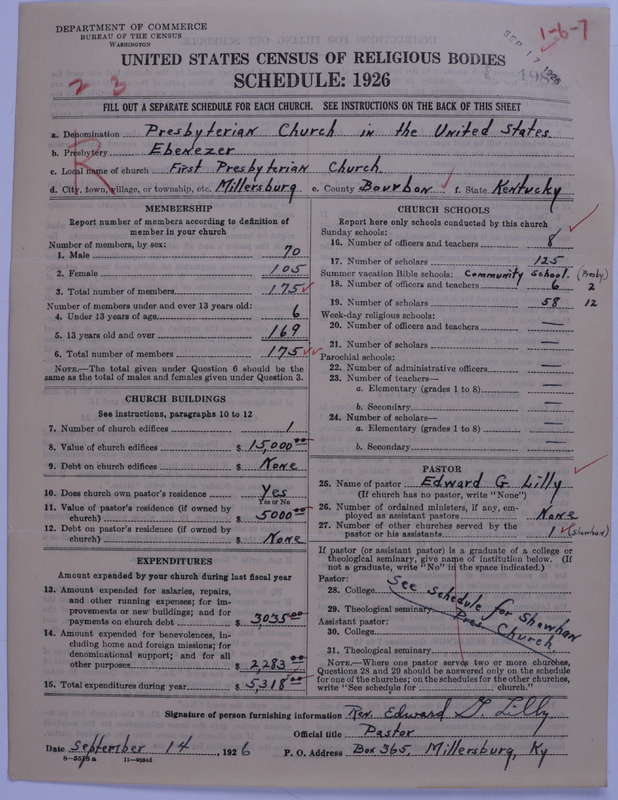 DEPARTMENT OF COMMERCE
BUREAU OF THE CENSUS
WASHINGTON
1-6-7
SEP 17 1926
UNITED STATES CENSUS OF RELIGIOUS BODIES
2 3
SCHEDULE: 1926
FILL OUT A SEPARATE SCHEDULE FOR EACH CHURCH. SEE INSTRUCTIONS ON THE BACK OF THIS SHEET
R
a. Denomination Presbyterian Church in the United States
b. Presbytery Ebenezer
c. Local name of church First Presbyterian Church.
d. City, town, village, or township, etc. Millersburg e. County Bourbon f. State Kentucky
MEMBERSHIP
Report number of members according to definition of
member in your church
Number of members, by sex:
1. Male 70
2. Female 105
3. Total number of members 175
Number of members under and over 13 years old:
4. Under 13 years of age 6
5. 13 years old and over 169
6. Total number of members 175
NOTE.—The total given under Question 6 should be the
same as the total of males and females given under Question 3.
CHURCH BUILDINGS
See instructions, paragraphs 10 to 12
7. Number of church edifices 1
8. Value of church edifices $ 15,000 00
9. Debt on church edifices $ None
10. Does church own pastor's residence Yes
Yes or No
11. Value of pastor's residence (if owned by
church) $ 5000 00
12. Debt on pastor's residence (if owned by
church) $ None
EXPENDITURES
Amount expended by your church during last fiscal year
13. Amount expended for salaries, repairs,
and other running expenses; for im-
provements or new buildings; and for
payments on church debt $ 3,035 00
14. Amount expended for benevolences, in-
cluding home and foreign missions; for
denominational support; and for all
other purposes $ 2,283 00
15. Total expenditures during year $ 5,318 00
CHURCH SCHOOLS
Report here only schools conducted by this church
Sunday schools:
16. Number of officers and teachers 8
17. Number of scholars 125
Summer vacation Bible schools: Community School. (Presby)
18. Number of officers and teachers 6 2
19. Number of scholars 58 12
Week-day religious schools:
20. Number of officers and teachers —
21. Number of scholars —
Parochial schools:
22. Number of administrative officers —
23. Number of teachers—
a. Elementary (grades 1 to 8) —
b. Secondary —
24. Number of scholars—
a. Elementary (grades 1 to 8) —
b. Secondary —
PASTOR
25. Name of pastor Edward G Lilly
(If church has no pastor, write "None")
26. Number of ordained ministers, if any, em-
ployed as assistant pastors None
27. Number of other churches served by the
pastor or his assistants 1 (Shawhan)
If pastor (or assistant pastor) is a graduate of a college or
theological seminary, give name of institution below. (If
not a graduate, write "No" in the space indicated.)
Pastor:
28. College
29. Theological seminary
See schedule for Shawhan
Pres. Church
Assistant pastor:
30. College
31. Theological seminary
NOTE.—Where one pastor serves two or more churches,
Questions 28 and 29 should be answered only on the schedule
for one of the churches; on the schedules for the other churches,
write "See schedule for church."
Signature of person furnishing information Rev. Edward G. Lilly
Official title Pastor
Date September 14, 1926 P. O. Address Box 365, Millersburg, Ky